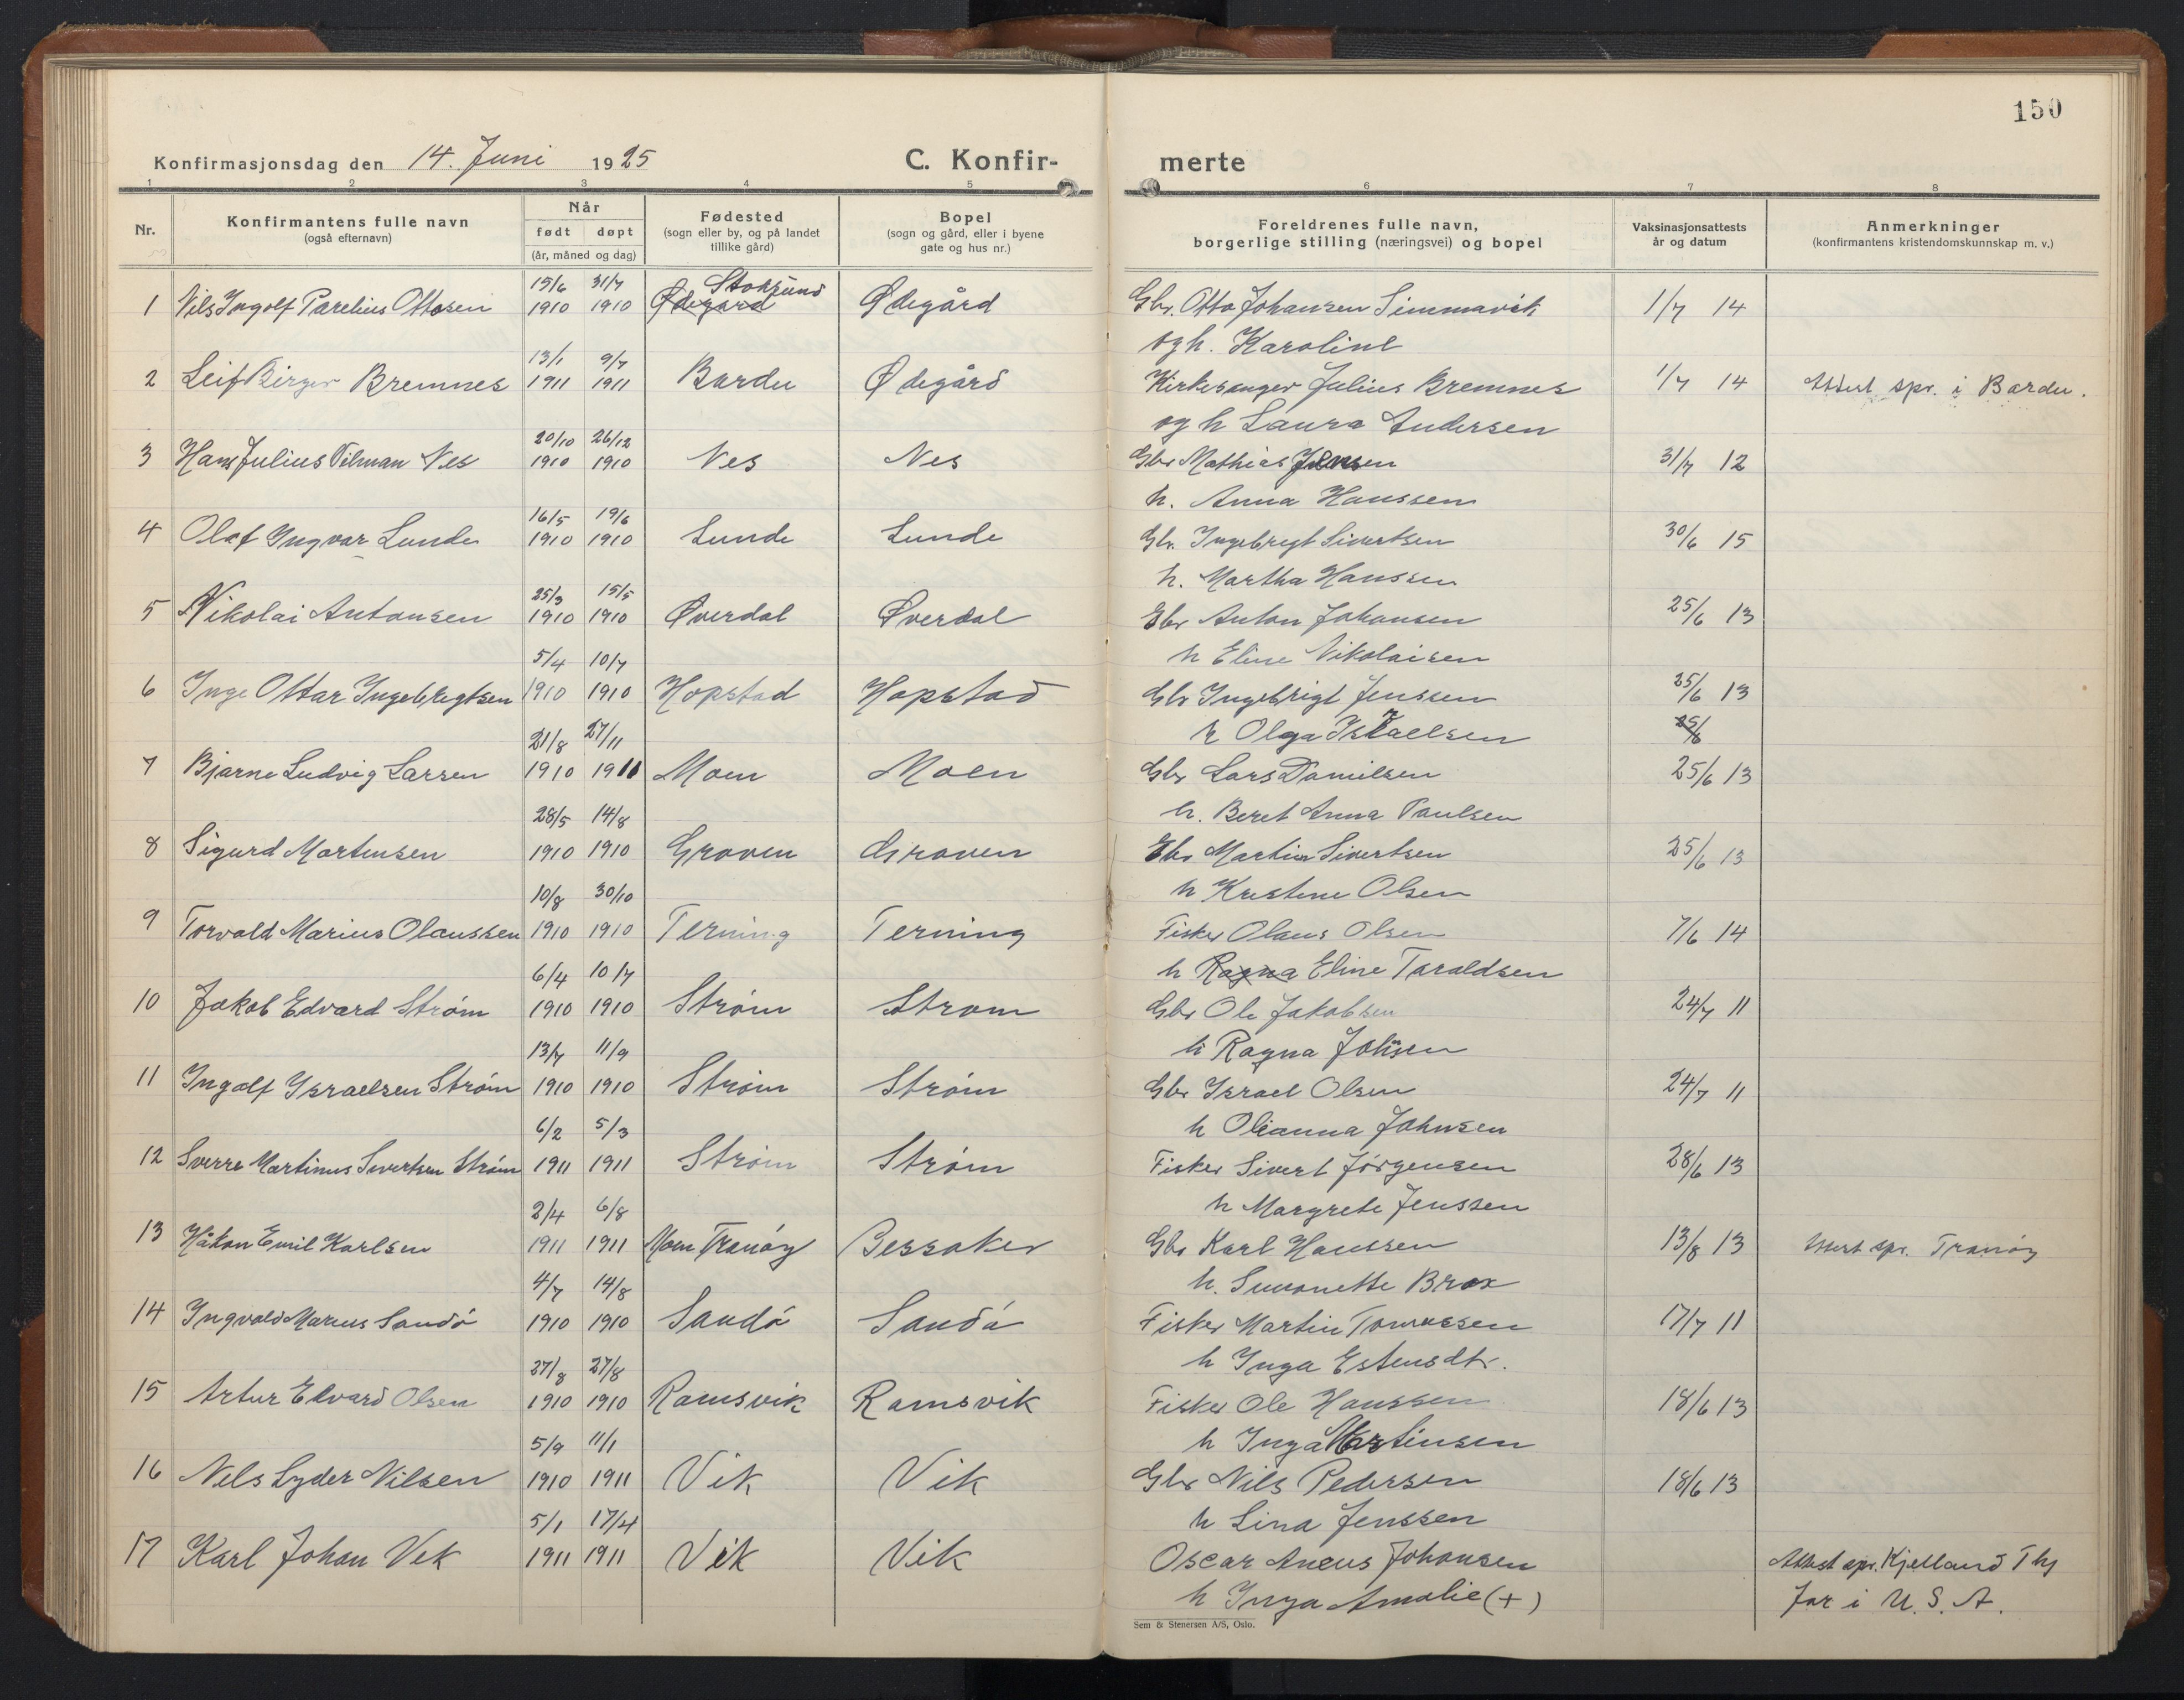 150
Konfirmasjonsdag den 14. Juni 1925 C. Konfir- merte
1 2 3 4 5 6 7 8
Nr. Konfirmantens fulle navn (også efternavn) Når født døpt (år, måned og dag) Fødested (sogn eller by, og på landet tillike gård) Bopel (sogn og gård, eller i byene gate og hus nr.) Foreldrenes fulle navn, borgerlige stilling (næringsvei) og bopel Vaksinasjonsattests år og datum Anmerkninger (konfirmantens kristendomskunnskap m. v.)
15/6 31/7 Stoksund
1 Nils Ingolf Parelius Ottosen 1910 1910 Ødegård Ødegård Gbr. Otto Johansen Simmavik 1/7 14
og h. Karoline
13/1 9/7
2 Leif Birger Bremnes 1911 1911 Bardu Ødegård Kirkesanger Julius Bremnes 1/7 14 Attest spr. i Bardu.
og h Laura Andersen
20/10 26/12
3 Hans Julius Tilman Nes 1910 1910 Nes Nes Gbr Mathias Jensen 31/7 12
h. Anna Hanssen
16/5 19/6
4 Olaf Ingvar Lunde 1910 1910 Lunde Lunde Gbr. Ingebregt Sivertsen 30/6 15
h. Martha Hanssen
25/3 15/5
5 Nikolai Antonsen 1910 1910 Øverdal Øverdal Gbr Anton Johansen 25/6 13
h Eline Nikolaisen
5/4 10/7
6 Inge Ottar Ingebregtsen 1910 1910 Hopstad Hopstad Gbr Ingebrigt Jenssen 25/6 13
h Olga Israelsen 25/6
21/8 27/11
7 Bjarne Ludvig Larsen 1910 1910 Moen Moen Gbr Lars Danielsen 25/6 13
h. Beret Anna Paulsen
28/5 14/8
8 Sigurd Martinsen 1910 1910 Groven Groven Gbr Martin Sivertsen 25/6 13
h Kristine Olsen
10/8 30/10
9 Torvald Marius Olaussen 1910 1910 Terning Terning Fisker Olaus Olsen 7/6 14
h Ragna Eline Taraldsen
6/4 10/7
10 Jakob Edvard Strøm 1910 1910 Strøm Strøm Gbr Ole Jakobsen 24/7 11
h Ragna Johnsen
13/7 11/9
11 Ingolf Israelsen Strøm 1910 1910 Strøm Strøm Gbr Israel Olsen 24/7 11
h Olianna Johnsen
6/2 5/3
12 Sverre Martinus Sivertsen Strøm 1911 1911 Strøm Strøm Fisker Sivert Jørgensen 28/6 13
h Margrete Jenssen
2/4 6/8
13 Håkon Emil Karlsen 1911 1911 Moen Tranøy Bessaker Gbr Karl Hanssen 13/8 13 Attest spr. Tranøy
h. Simonette Brox
4/7 14/8
14 Ingvald Marius Sandø 1910 1910 Sandø Sandø Fisker Martin Tomassen 17/7 11
h Inga Estensdtr.
27/8 27/8
15 Artur Edvard Olsen 1910 1910 Ramsvik Ramsvik Fisker Ole Hanssen 18/6 13
h Inga Martinsen
5/9 11/1
16 Nels Lyder Nilsen 1910 1911 Vik Vik Gbr Nils Pedersen 18/6 13
h Lina Jenssen
5/1 17/4
17 Karl Johan Vik 1911 1911 Vik Vik Oscar Aneus Johansen Attest spr. Kjelland Thj
h Inga Amalie (+) Far i U.S.A.
Sem & Stenersen A/S, Oslo.